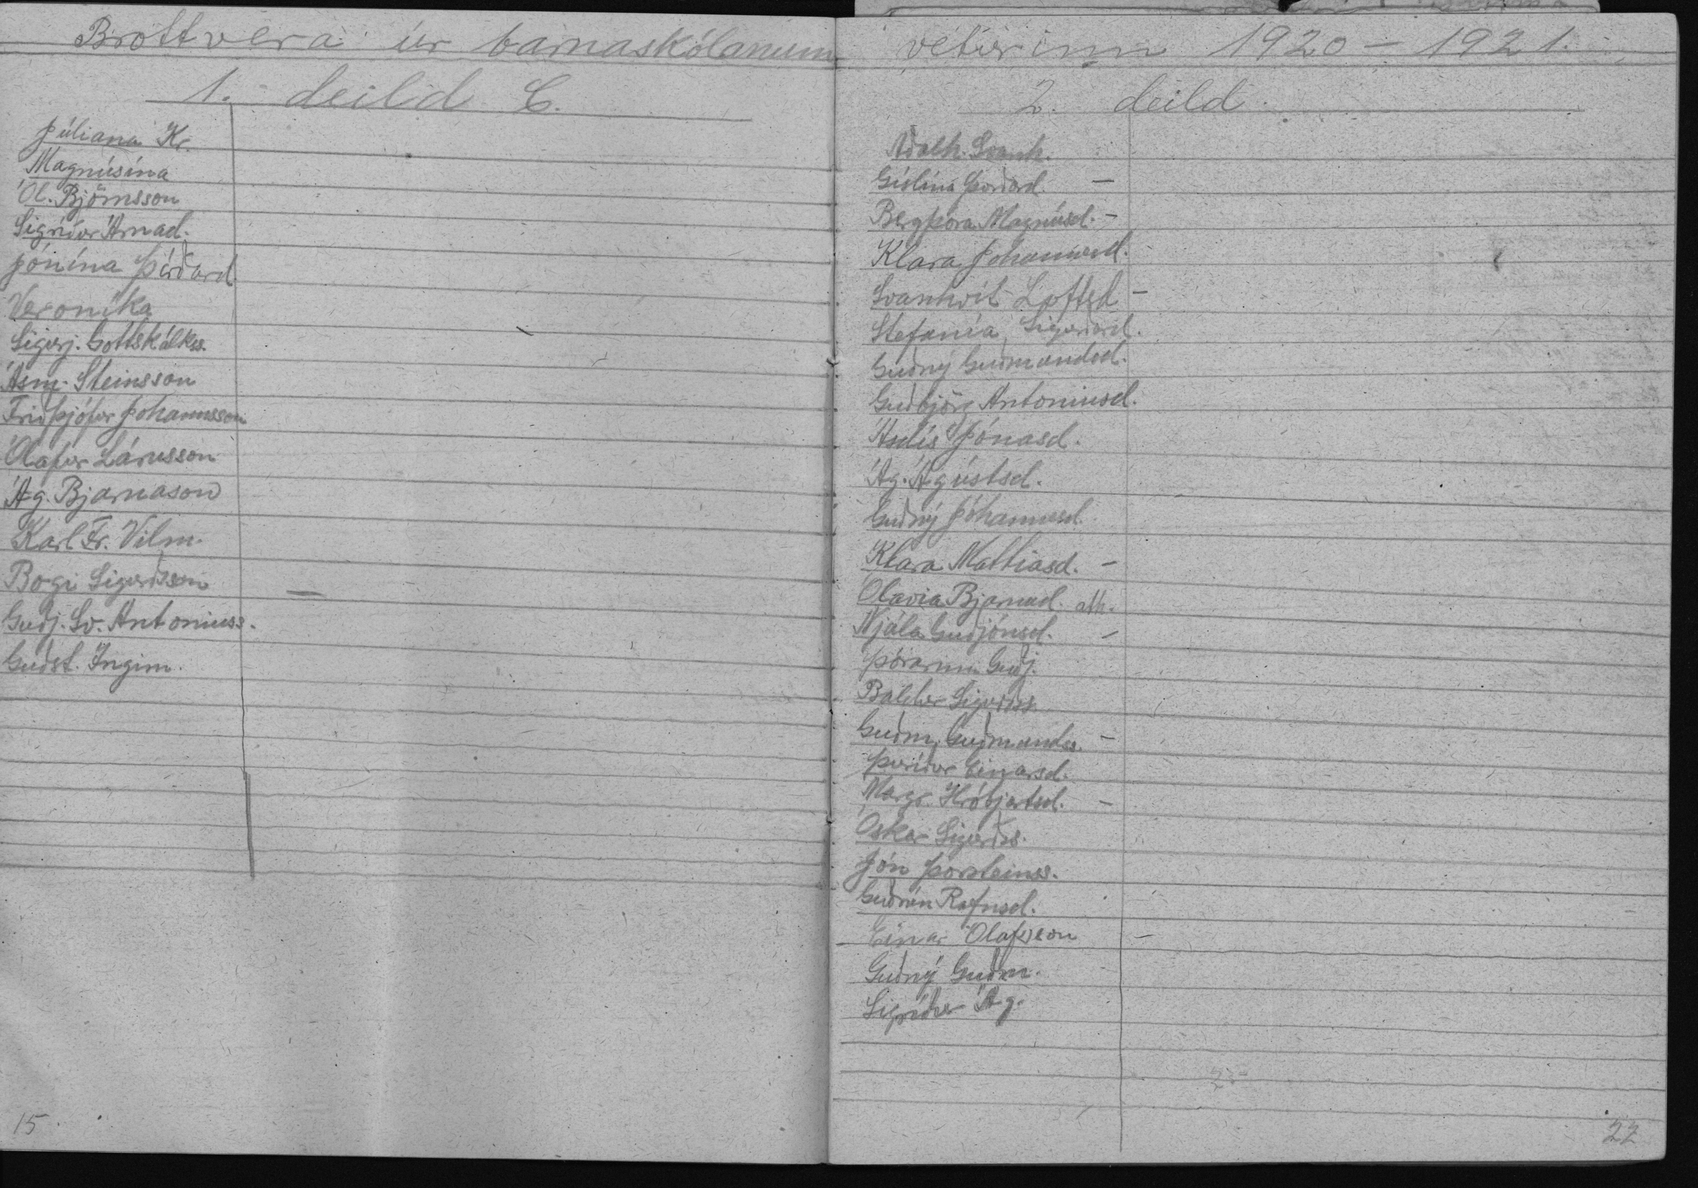 Brottvera úr barnaskólanum veturinn 1920-1921.
1. deild C.
Júliana Kr.
Magnúsína
Ól. Björnsson
Sigríður Árnad.
Jónína Þórðard
Veronika
Sigurj. Gottskálkss.
Ásm. Steinsson
Friðþjófur Johannsson
Ólafur Lárusson
Ág. Bjarnason
Karl Fr. Vilm.
Bogi Sigurðsson —
Guðj. Sv. Antoniuss.
Guðst. Ingim.
15
2. deild.
Aðalh. Svanh.
Þorðard. —
Bergþora Magnúsd. -
Klara Johannesd.
Svanhvít Loftsd -
Stefanía Sigurðard.
Guðný Guðmundsd.
Guðbjörg Antoniusd.
Ásdís Jónasd.
Ág. Ágústsd.
Guðný Jóhannesd.
Klara Mattiasd. -
Olavia Bjarnad. ath.
Njála Guðjónsd. -
Þórarinn Guðj.
Baldur Sigurðss.
Guðm. Guðmundss. -
Þuríður Einarsd.
Margr. Hróbjartsd. -
Óskar Sigurðss.
Jón Þorsteinss.
Guðrún Rafnsd.
Einar Ólafsson -
Guðný Guðm.
Sigríður Ág.
22